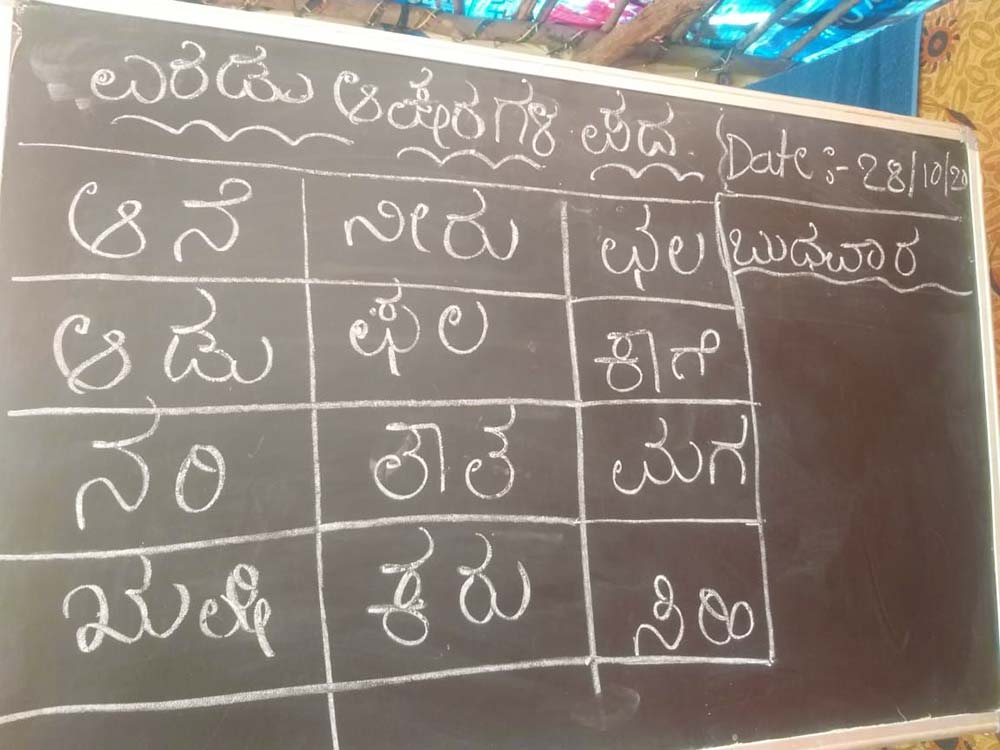 ಎರಡು ಅಕ್ಷರಗಳ ಪದ
Date :- 28/10/20
ಬುಧವಾರ
ಆನೆ ನೀರು ಛಲ
ಆಡು ಫಲ ಕಾಗೆ
ನರಿ ತಾತ ಮಗ
ಋಷಿ ಕರು ಸಿರಿ